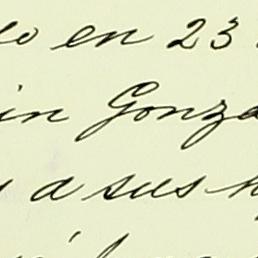 en 23
in Gonza
y a sus h